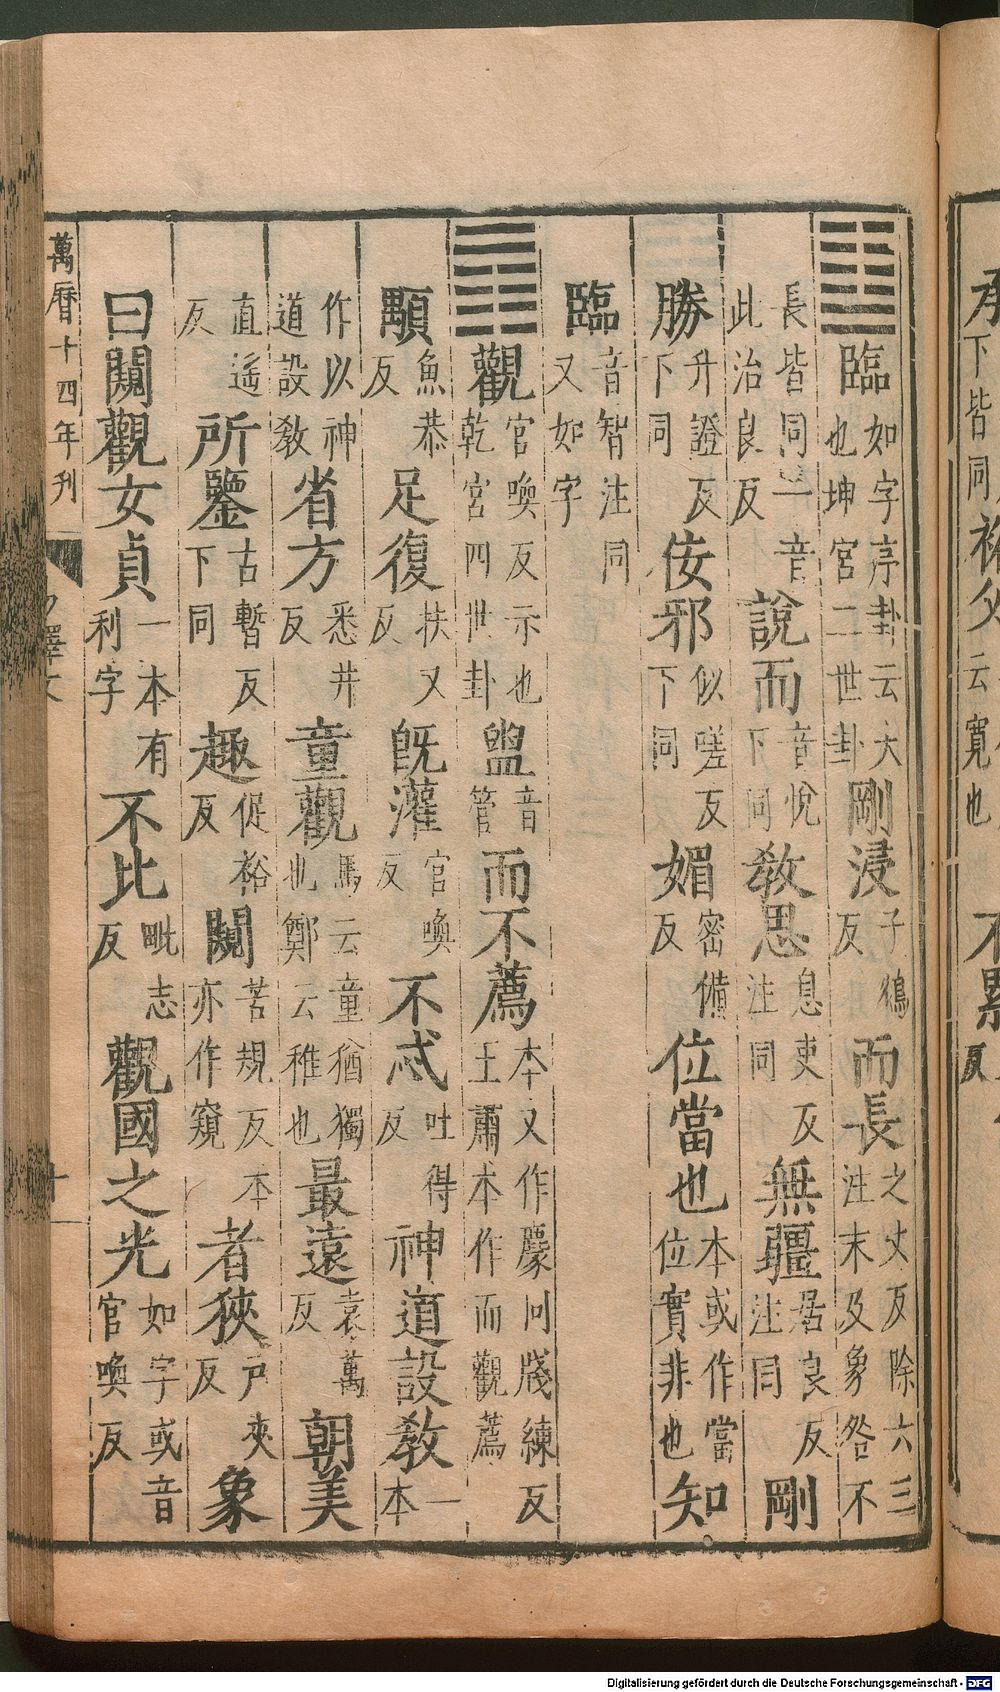 下皆同 裕父 云寬也
反
臨 如字序卦云大也坤宮二世卦 剛浸 子鴆反 而長 之丈反除六三注末及象咎不
長皆同一音此治良反 說而 音悅下同 敎思 息吏反注同 無疆 居良反注同 剛
勝 升證反下同 佞邪 似嗟反下同 媚 密備反 位當也 本或作當位實非也 知
臨 音智注同又如字
觀 官喚反示也乾宮四世卦 盥 音管 而不薦 本又作同牋練反王肅本作而觀薦
顒 魚恭反 足復 扶又反 旣灌 官喚反 不忒 吐得反 神道設敎 一本
作以神道設敎 省方 悉井反 童觀 馬云童猶獨也鄭云稚也 最遠 袁萬反 朝美
直遙反 所鑒 古暫反下同 趣 促裕反 闚 苦規反本亦作窺 者狹 戶夾反 象
曰闚觀女貞 一本有利字 不比 毗志反 觀國之光 如字或音官喚反
萬曆十四年刊 釋文 十
Digitalisierung gefördert durch die Deutsche Forschungsgemeinschaft - DFG